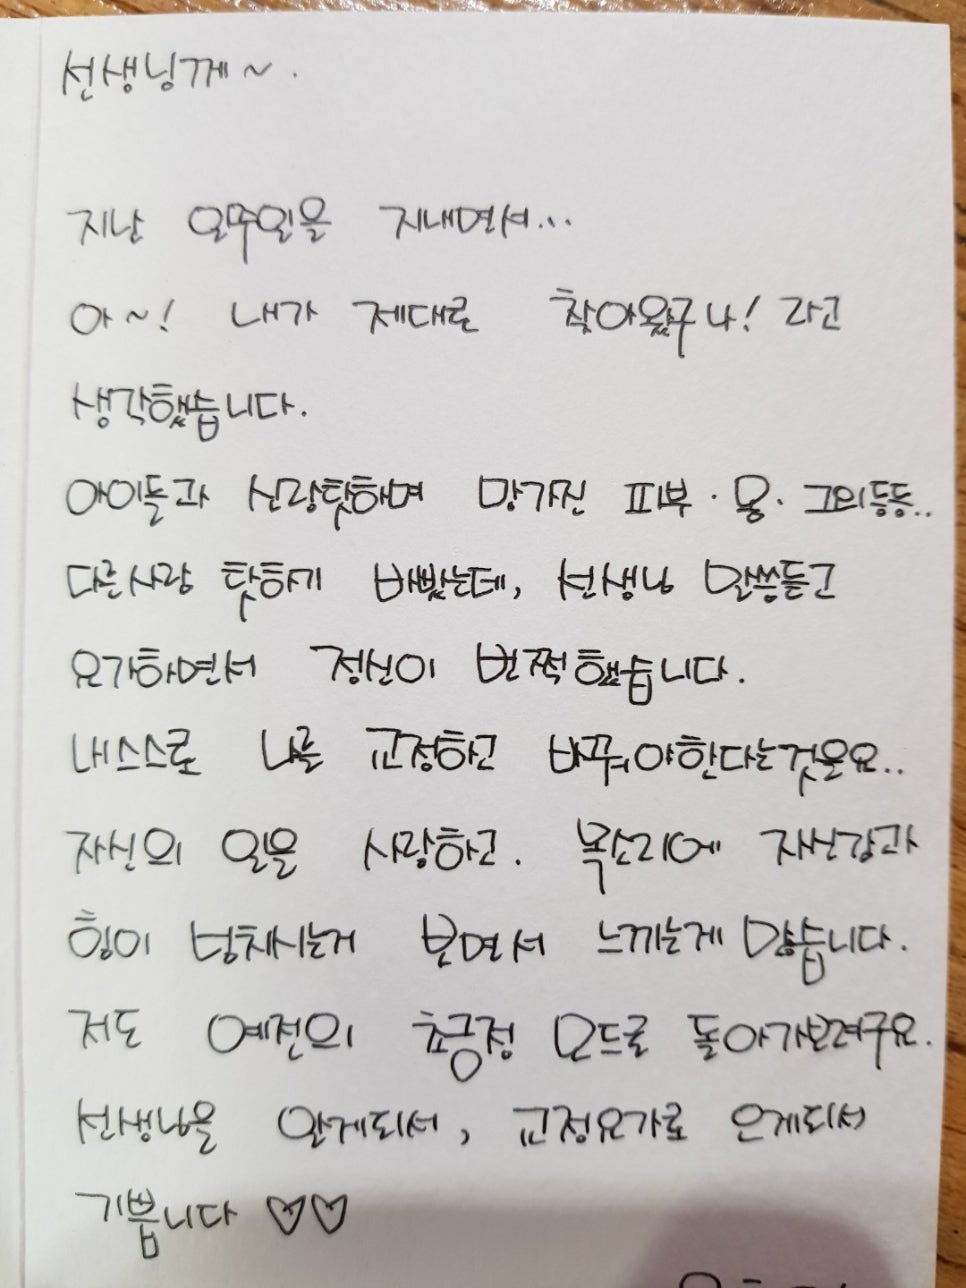 선생님께~.
지난 일주일을 지내면서...
아~! 내가 제대로 찾아왔구나! 라고
생각했습니다.
아이들과 신랑탓하며 망가진 피부·몸· 그외등등..
다른사람 탓하기 바빴는데, 선생님 말씀듣고
요가하면서 정신이 번쩍했습니다.
내스스로 나를 교정하고 바꿔야한다는것을요..
자신의 일을 사랑하고. 목소리에 자신감과
힘이 넘치시는거 보면서 느끼는게 많습니다.
저도 예전의 초긍정 모드로 돌아가보려구요.
선생님을 알게되서, 교정요가로 오게되서
기쁩니다 ♡♡